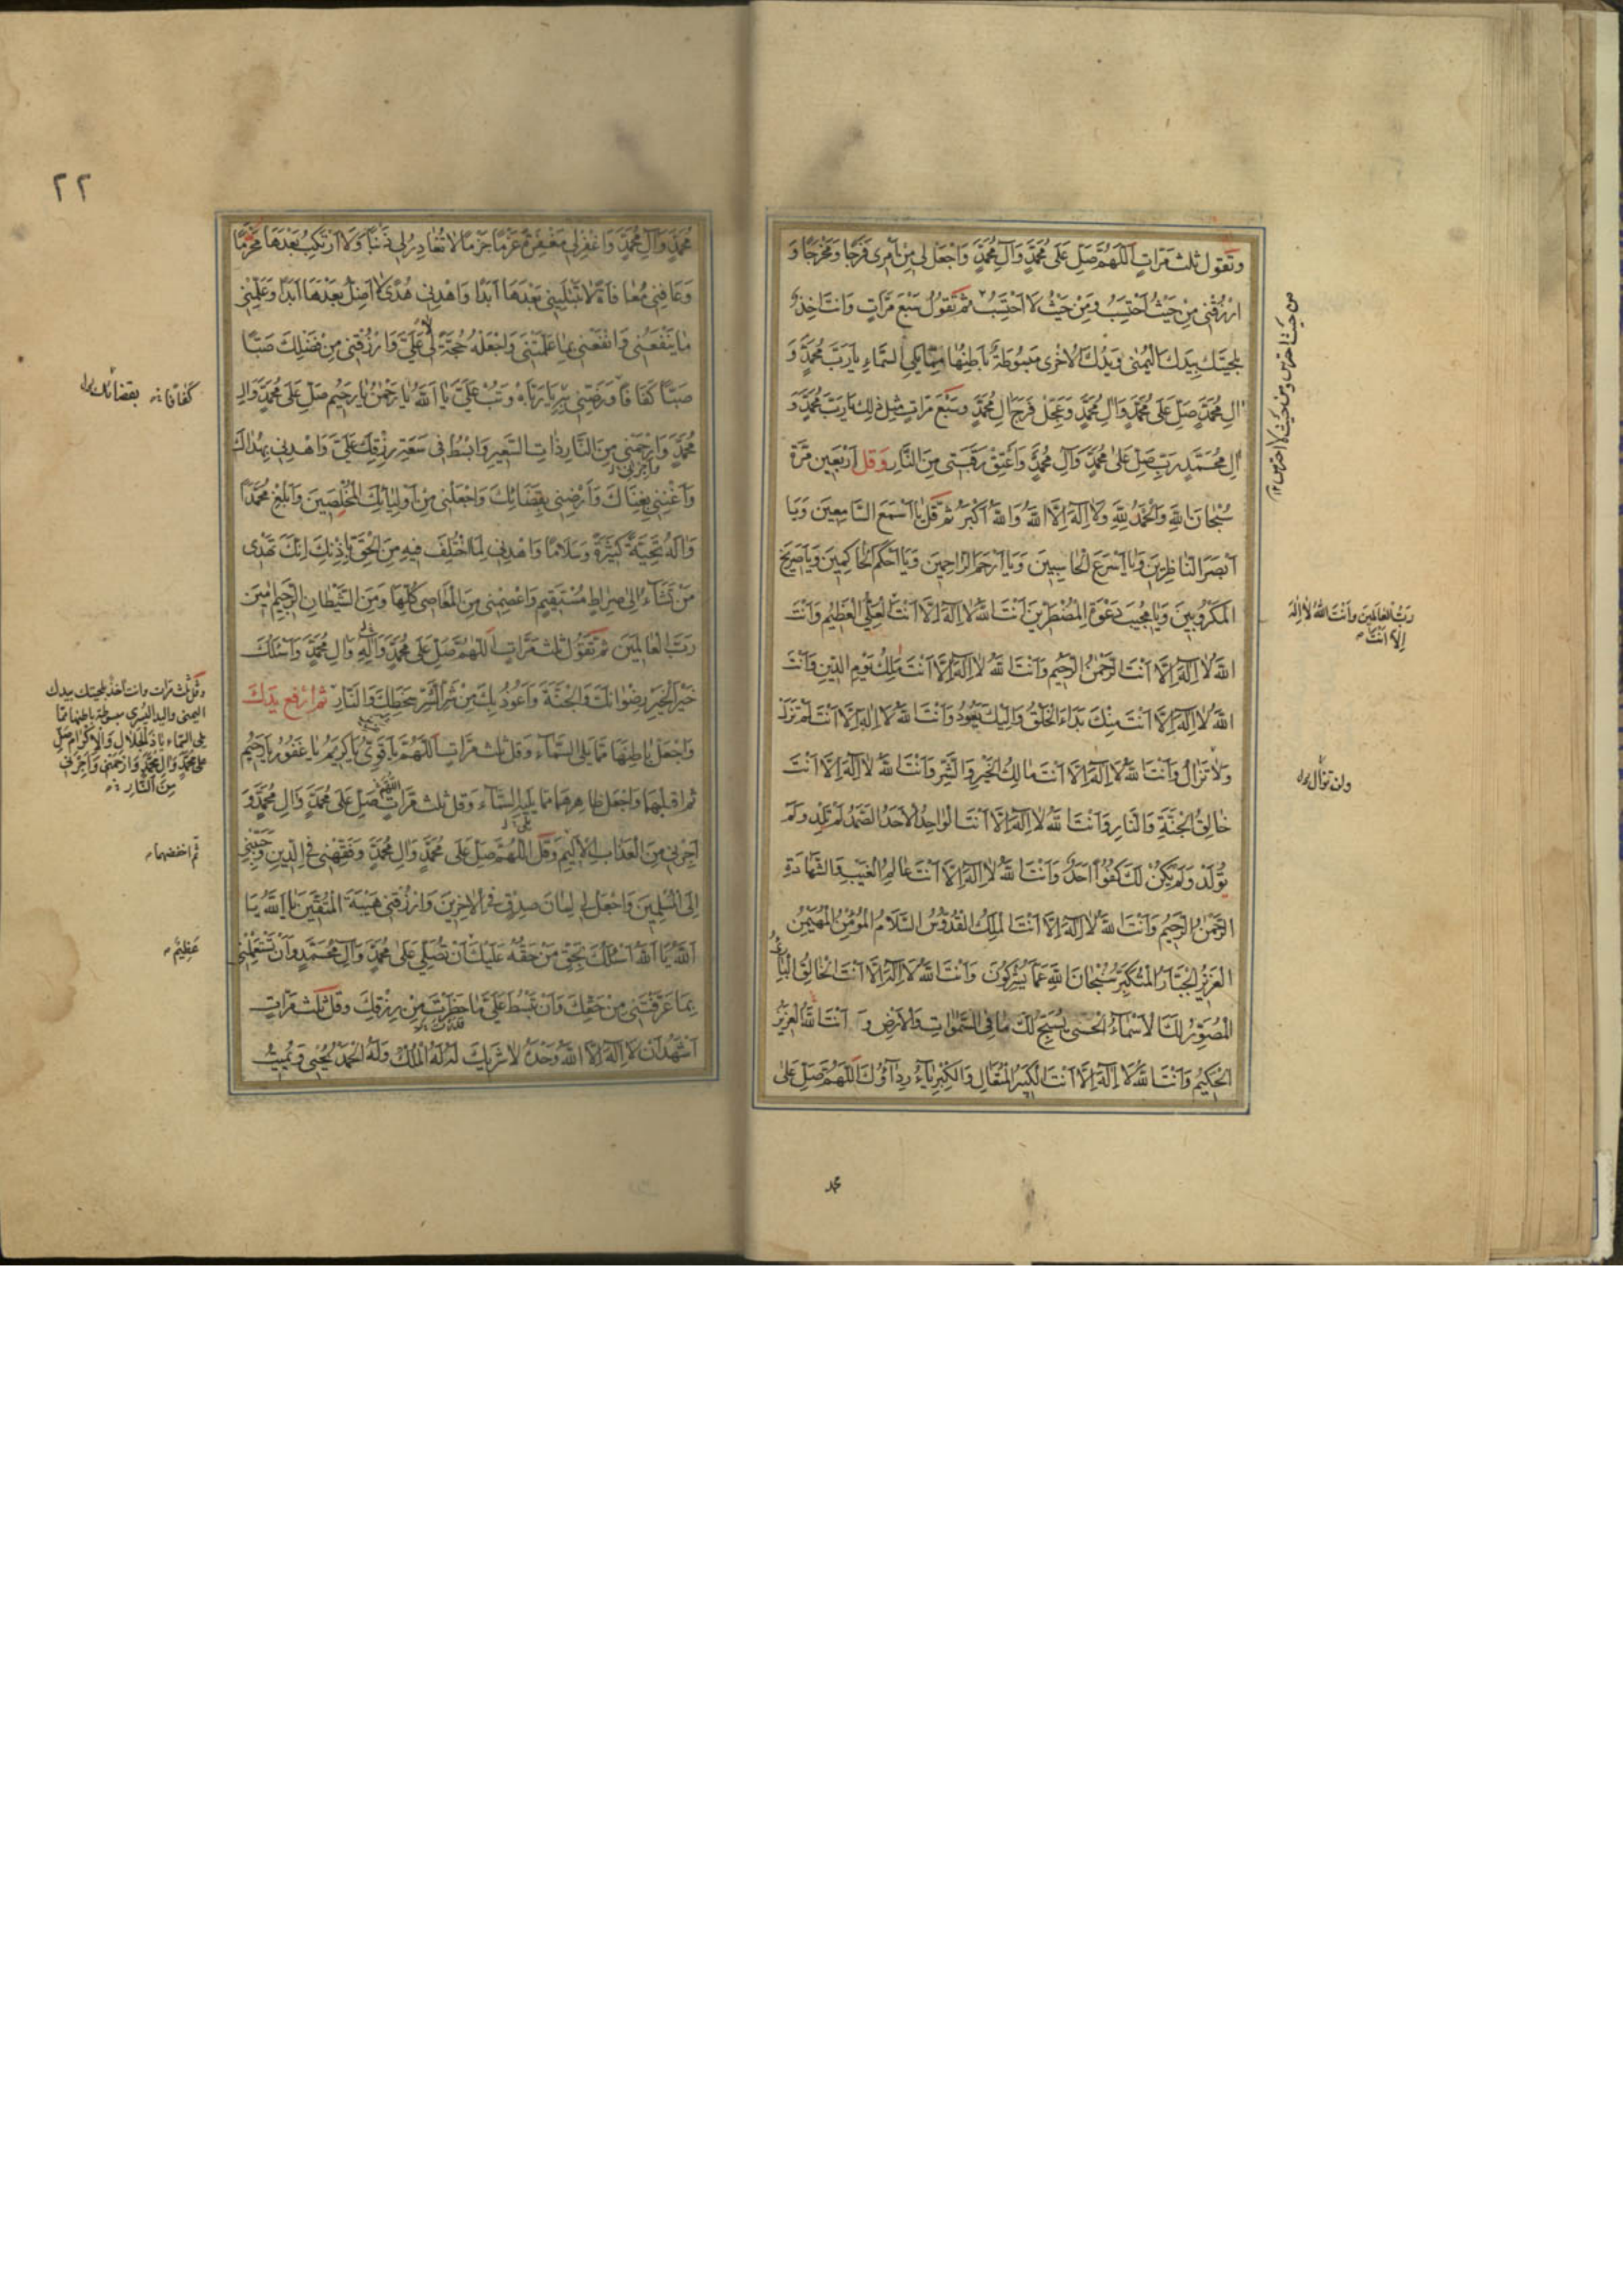 وتقول ثلث مرات اَللّهُمَّ صَلِّ عَلى مُحَمَّدٍ وَآلِ مُحَمَّدٍ وَاجْعَلْ لي مِنْ اَمْري فَرَجًا وَمَخْرَجًا وَ
ارْزُقْني مِنْ حَيْثُ اَحْتَسِبُ وَمِنْ حَيْثُ لا اَحْتَسِبُ ثم تقول سبع مرات وانت اخذ
بلحيتك بيدك اليمنى ويدك الاخرى مبسوطة باطنها مما يلي السماء يا رَبَّ مُحَمَّدٍ وَ
الِ مُحَمَّدٍ صَلِّ عَلى مُحَمَّدٍ وَالِ مُحَمَّدٍ وَعَجِّلْ فَرَجَ الِ مُحَمَّدٍ وسبع مرات مثل ذلك يا رَبَّ مُحَمَّدٍ وَ
الِ مُحَمَّدٍ صَلِّ عَلى مُحَمَّدٍ وَآلِ مُحَمَّدٍ وَاَعْتِقْ رَقَبَتي مِنَ النّارِ وقل اربعين مرة
سُبْحانَ اللهِ وَالْحَمْدُ لِلّهِ وَلا اِلهَ اِلاَّ اللهُ وَاللهُ اَكْبَرُ ثم قل يا اَسْمَعَ السّامِعينَ وَيا
اَبْصَرَ النّاظِرينَ وَيا اَسْرَعَ الْحاسِبينَ وَيا اَرْحَمَ الرّاحِمينَ وَيا اَحْكَمَ الْحاكِمينَ وَيا صَريخَ
الْمَكْرُوبينَ وَيا مُجيبَ دَعْوَةِ الْمُضْطَرّينَ اَنْتَ اللهُ لا اِلهَ اِلاّ اَنْتَ الْعَلِيُّ الْعَظيمُ وَاَنْتَ
اللهُ لا اِلهَ اِلاّ اَنْتَ الرَّحْمنُ الرَّحيمُ وَاَنْتَ اللهُ لا اِلهَ اِلاّ اَنْتَ مَلِكُ يَوْمِ الدّينِ وَاَنْتَ
اللهُ لا اِلهَ اِلاّ اَنْتَ مِنْكَ بَداءُ الْخَلْقِ وَاِلَيْكَ يَعُودُ وَاَنْتَ اللهُ لا اِلهَ اِلاّ اَنْتَ لَمْ تَزَلْ
وَلا تَزالُ وَاَنْتَ اللهُ لا اِلهَ اِلاّ اَنْتَ مالِكُ الْخَيْرِ وَالشَّرِّ وَاَنْتَ اللهُ لا اِلهَ اِلاّ اَنْتَ
خالِقُ الْجَنَّةِ وَالنّارِ وَاَنْتَ اللهُ لا اِلهَ اِلاّ اَنْتَ الْواحِدُ الْاَحَدُ الصَّمَدُ لَمْ تَلِدْ وَلَمْ
تُولَدْ وَلَمْ يَكُنْ لَكَ كُفُوًا اَحَدٌ وَاَنْتَ اللهُ لا اِلهَ اِلاّ اَنْتَ عالِمُ الْغَيْبِ وَالشَّهادَةِ
الرَّحْمنُ الرَّحيمُ وَاَنْتَ اللهُ لا اِلهَ اِلاّ اَنْتَ الْمَلِكُ الْقُدُّوسُ السَّلامُ الْمُؤْمِنُ الْمُهَيْمِنُ
الْعَزيزُ الْجَبّارُ الْمُتَكَبِّرُ سُبْحانَ اللهِ عَمّا يُشْرِكُونَ وَاَنْتَ اللهُ لا اِلهَ اِلاّ اَنْتَ الْخالِقُ الْبارِئُ
الْمُصَوِّرُ لَكَ الْاَسْماءُ الْحُسْنى يُسَبِّحُ لَكَ ما فِي السَّمواتِ وَالْاَرْضِ وَ اَنْتَ اللهُ الْعَزيزُ
الْحَكيمُ وَاَنْتَ اللهُ لا اِلهَ اِلاّ اَنْتَ الْكَبيرُ الْمُتَعالِ وَالْكِبْرِياءُ رِداؤُكَ اَللّهُمَّ صَلِّ عَلى
رَبُّ الْعالَمينَ وَاَنْتَ اللهُ لا اِلهَ
اِلاّ اَنْتَ
محمد
٢٢
مُحَمَّدٍ وَآلِ مُحَمَّدٍ وَاغْفِرْ لي مَغْفِرَةً عَزْمًا جَزْمًا لا تُغادِرُ لي ذَنْبًا وَلا اَرْتَكِبُ بَعْدَها مُحَرَّمًا
وَعافِني مُعافاةً لا تَبْتَليني بَعْدَها اَبَدًا وَاهْدِني هُدًى لا اَضِلُّ بَعْدَها اَبَدًا وَعَلِّمْني
ما يَنْفَعُني وَانْفَعْني بِما عَلَّمْتَني وَاجْعَلْهُ حُجَّةً لي لا عَلَيَّ وَارْزُقْني مِنْ فَضْلِكَ صَبًّا
صَبًّا كَفافًا وَرَضِّني بِهِ يا رَبّاهُ وَتُبْ عَلَيَّ يا اَللهُ يا رَحْمنُ يا رَحيمُ صَلِّ عَلى مُحَمَّدٍ وَالِ
مُحَمَّدٍ وَارْحَمْني مِنَ النّارِ ذاتِ السَّعيرِ وَابْسُطْ في سَعَةِ رِزْقِكَ عَلَيَّ وَاهْدِني بِهُداكَ
وَاَغْنِني بِغِناكَ وَاَرْضِني بِقَضائِكَ وَاجْعَلْني مِنْ اَوْلِيائِكَ الْمُخْلَصينَ وَاَبْلِغْ مُحَمَّدًا
وَالَهُ تَحِيَّةً كَثيرَةً وَسَلامًا وَاهْدِني لِمَا اخْتُلِفَ فيهِ مِنَ الْحَقِّ بِاِذْنِكَ اِنَّكَ تَهْدي
مَنْ تَشاءُ اِلى صِراطٍ مُسْتَقيمٍ وَاعْصِمْني مِنَ الْمَعاصي كُلِّها وَمِنَ الشَّيْطانِ الرَّجيمِ امينَ
رَبَّ الْعالَمينَ ثم تقول ثلث مرات اَللّهُمَّ صَلِّ عَلى مُحَمَّدٍ وَالِ مُحَمَّدٍ وَاَسْئَلُكَ
خَيْرَ الْخَيْرِ رِضْوانَكَ وَالْجَنَّةَ وَاَعُوذُ بِكَ مِنْ شَرِّ الشَّرِّ سَخَطِكَ وَالنّارِ ثم ارفع يدك
واجعل باطنها مما يلي السماء وقل ثلث مرات اَللّهُمَّ يا قَوِيُّ يا كَريمُ يا غَفُورُ يا رَحيمُ
ثم اقلبهما واجعل ظاهرهما مما يلي السماء وقل ثلث مرات اللهم صَلِّ عَلى مُحَمَّدٍ وَالِ مُحَمَّدٍ وَ
اَجِرْني مِنَ الْعَذابِ الْاَليمِ وقل اَللّهُمَّ صَلِّ عَلى مُحَمَّدٍ وَالِ مُحَمَّدٍ وَفَقِّهْني فِي الدّينِ وَحَبِّبْني
اِلَى الْمُسْلِمينَ وَاجْعَلْ لي لِسانَ صِدْقٍ فِي الْاخِرينَ وَارْزُقْني هَيْبَةَ الْمُتَّقينَ يا اَللهُ يا
اَللهُ يا اَللهُ اَسْئَلُكَ بِحَقِّ مَنْ حَقُّهُ عَلَيْكَ اَنْ تُصَلِّيَ عَلى مُحَمَّدٍ وَآلِ مُحَمَّدٍ وَاَنْ تَسْتَعْمِلَني
بِما عَرَّفْتَني مِنْ حَقِّكَ وَاَنْ تَبْسُطَ عَلَيَّ ما حَظَرْتَ مِنْ رِزْقِكَ وقل ثلث مرات
اَشْهَدُ اَنْ لا اِلهَ اِلاَّ اللهُ وَحْدَهُ لا شَريكَ لَهُ لَهُ الْمُلْكُ وَلَهُ الْحَمْدُ يُحْيي وَيُميتُ
كفافا بقضائك
وقل ثلث مرات وانت اخذ بلحيتك بيدك
اليمنى واليد اليسرى مبسوطة باطنها مما
يلي السماء يا ذَا الْجَلالِ وَالْاِكْرامِ صَلِّ
عَلى مُحَمَّدٍ وَالِ مُحَمَّدٍ وَارْحَمْني وَاَجِرْني
مِنَ النّارِ
ثم اخفضهما
عَظيمٌ